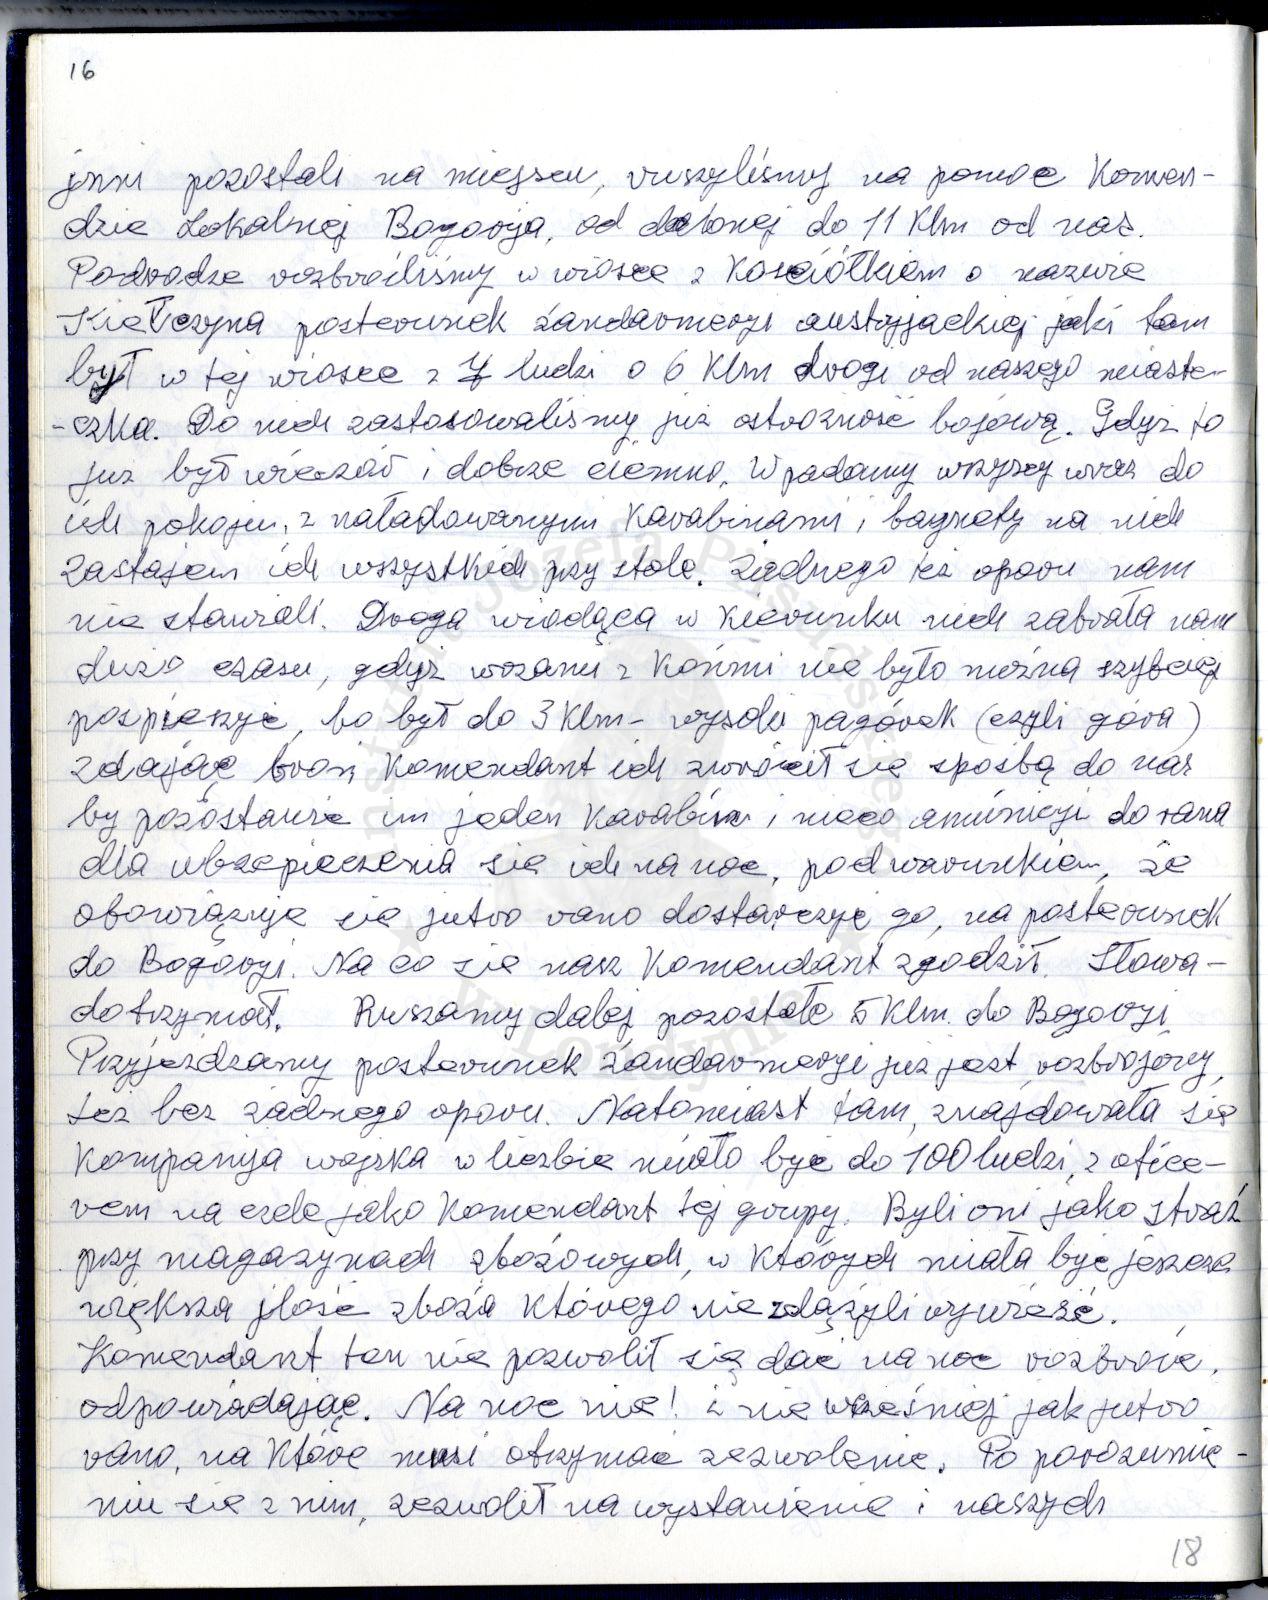 16
jnni pozostali na miejscu, ruszyliśmy na pomoc Komen-
dzie Lokalnej Bogorja, od dalonej do 11 Klm od nas.
Podrodze rozbroiliśmy w wiosce z Kościółkiem o nazwie
Kiełczyna posterunek żandarmerji austryjackiej jaki tam
był w tej wiosce z 7 ludzi o 6 Klm drogi od naszego miaste-
-czka. Do nich zastosowaliśmy już ostrożność bojową. Gdyż to
już był wieczór i dobrze ciemno. Wpadamy wszyscy wraz do
ich pokoju, z naładowanymi Karabinami i bagnety na nich
zastajem ich wszystkich przy stole. Żadnego też oporu nam
nie stawiali. Droga wiodąca w Kierunku nich zabrała nam
dużo czasu, gdyż wozami z Końmi nie było można szybciej
pospieszyć, bo był do 3 Klm- wysoki pagórek (czyli góra)
zdając broń Komendant ich zwrócił się spośbą do nas
by pozostawić im jeden Karabin i nieco amunicji do rana
dla ubezpieczenia się ich na noc, pod warunkiem, że
obowiązuje się jutro rano dostarczyć go, na posterunek
do Bogorji. Na co się nasz Komendant zgodził. Słowa-
dotrzymał. Ruszamy dalej pozostałe 5 Klm. do Bogorji
Przyjeżdzamy posterunek żandarmerji już jest rozbrojony,
też bez żadnego oporu. Natomiast tam, znajdowała się
Kompanija wojska w liczbie miało być do 100 ludzi, z ofice-
rem na czele jako Komendant tej grupy. Byli oni jako straż
przy magazynach zbożowych, w Których miała być jeszcze
większa jlość zboża Którego nie zdążyli wywieść.
Komendant ten nie pozwolił się dać na noc rozbroić,
odpowiadając. Na noc nie! i nie wcześniej jak jutro
rano, na Które musi otrzymać zezwolenie. Po porozumie-
niu się z nim, zezwolił na wystawienie i naszych
18
Instytut Józefa Piłsudskiego
w Londynie